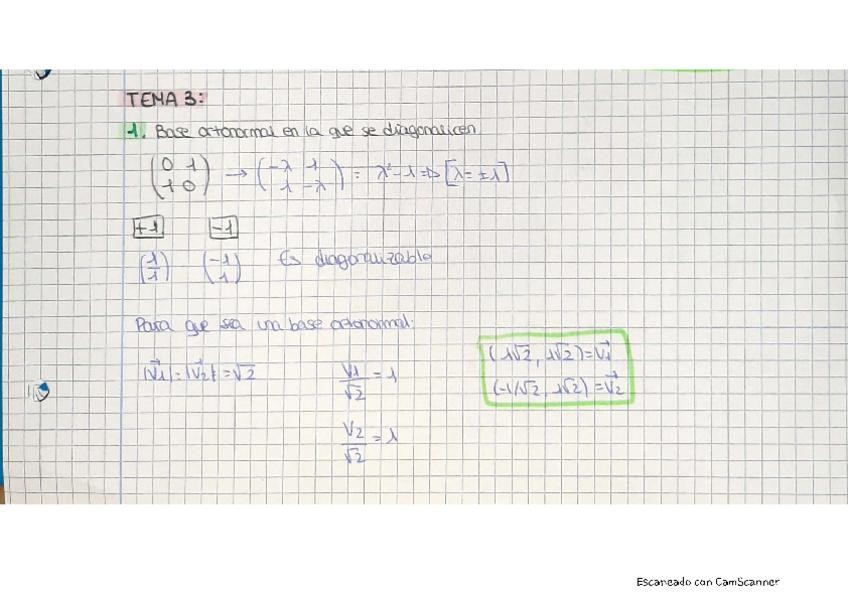 TEMA 3:
1. Base ortonormal en la que se diagonalicen
(0 1 / 1 0) → (-λ 1 / 1 -λ) = λ²-1 ⇒ [λ = ±1]
+1 -1
(1 / 1) (-1 / 1) Es diagonalizable
Para que sea una base ortonormal:
|V⃗1| = |V⃗2| = √2 V1/√2 = 1 (1√2, 1√2) = V⃗1
(-1/√2, 1√2) = V⃗2
V2/√2 = 1
Escaneado con CamScanner